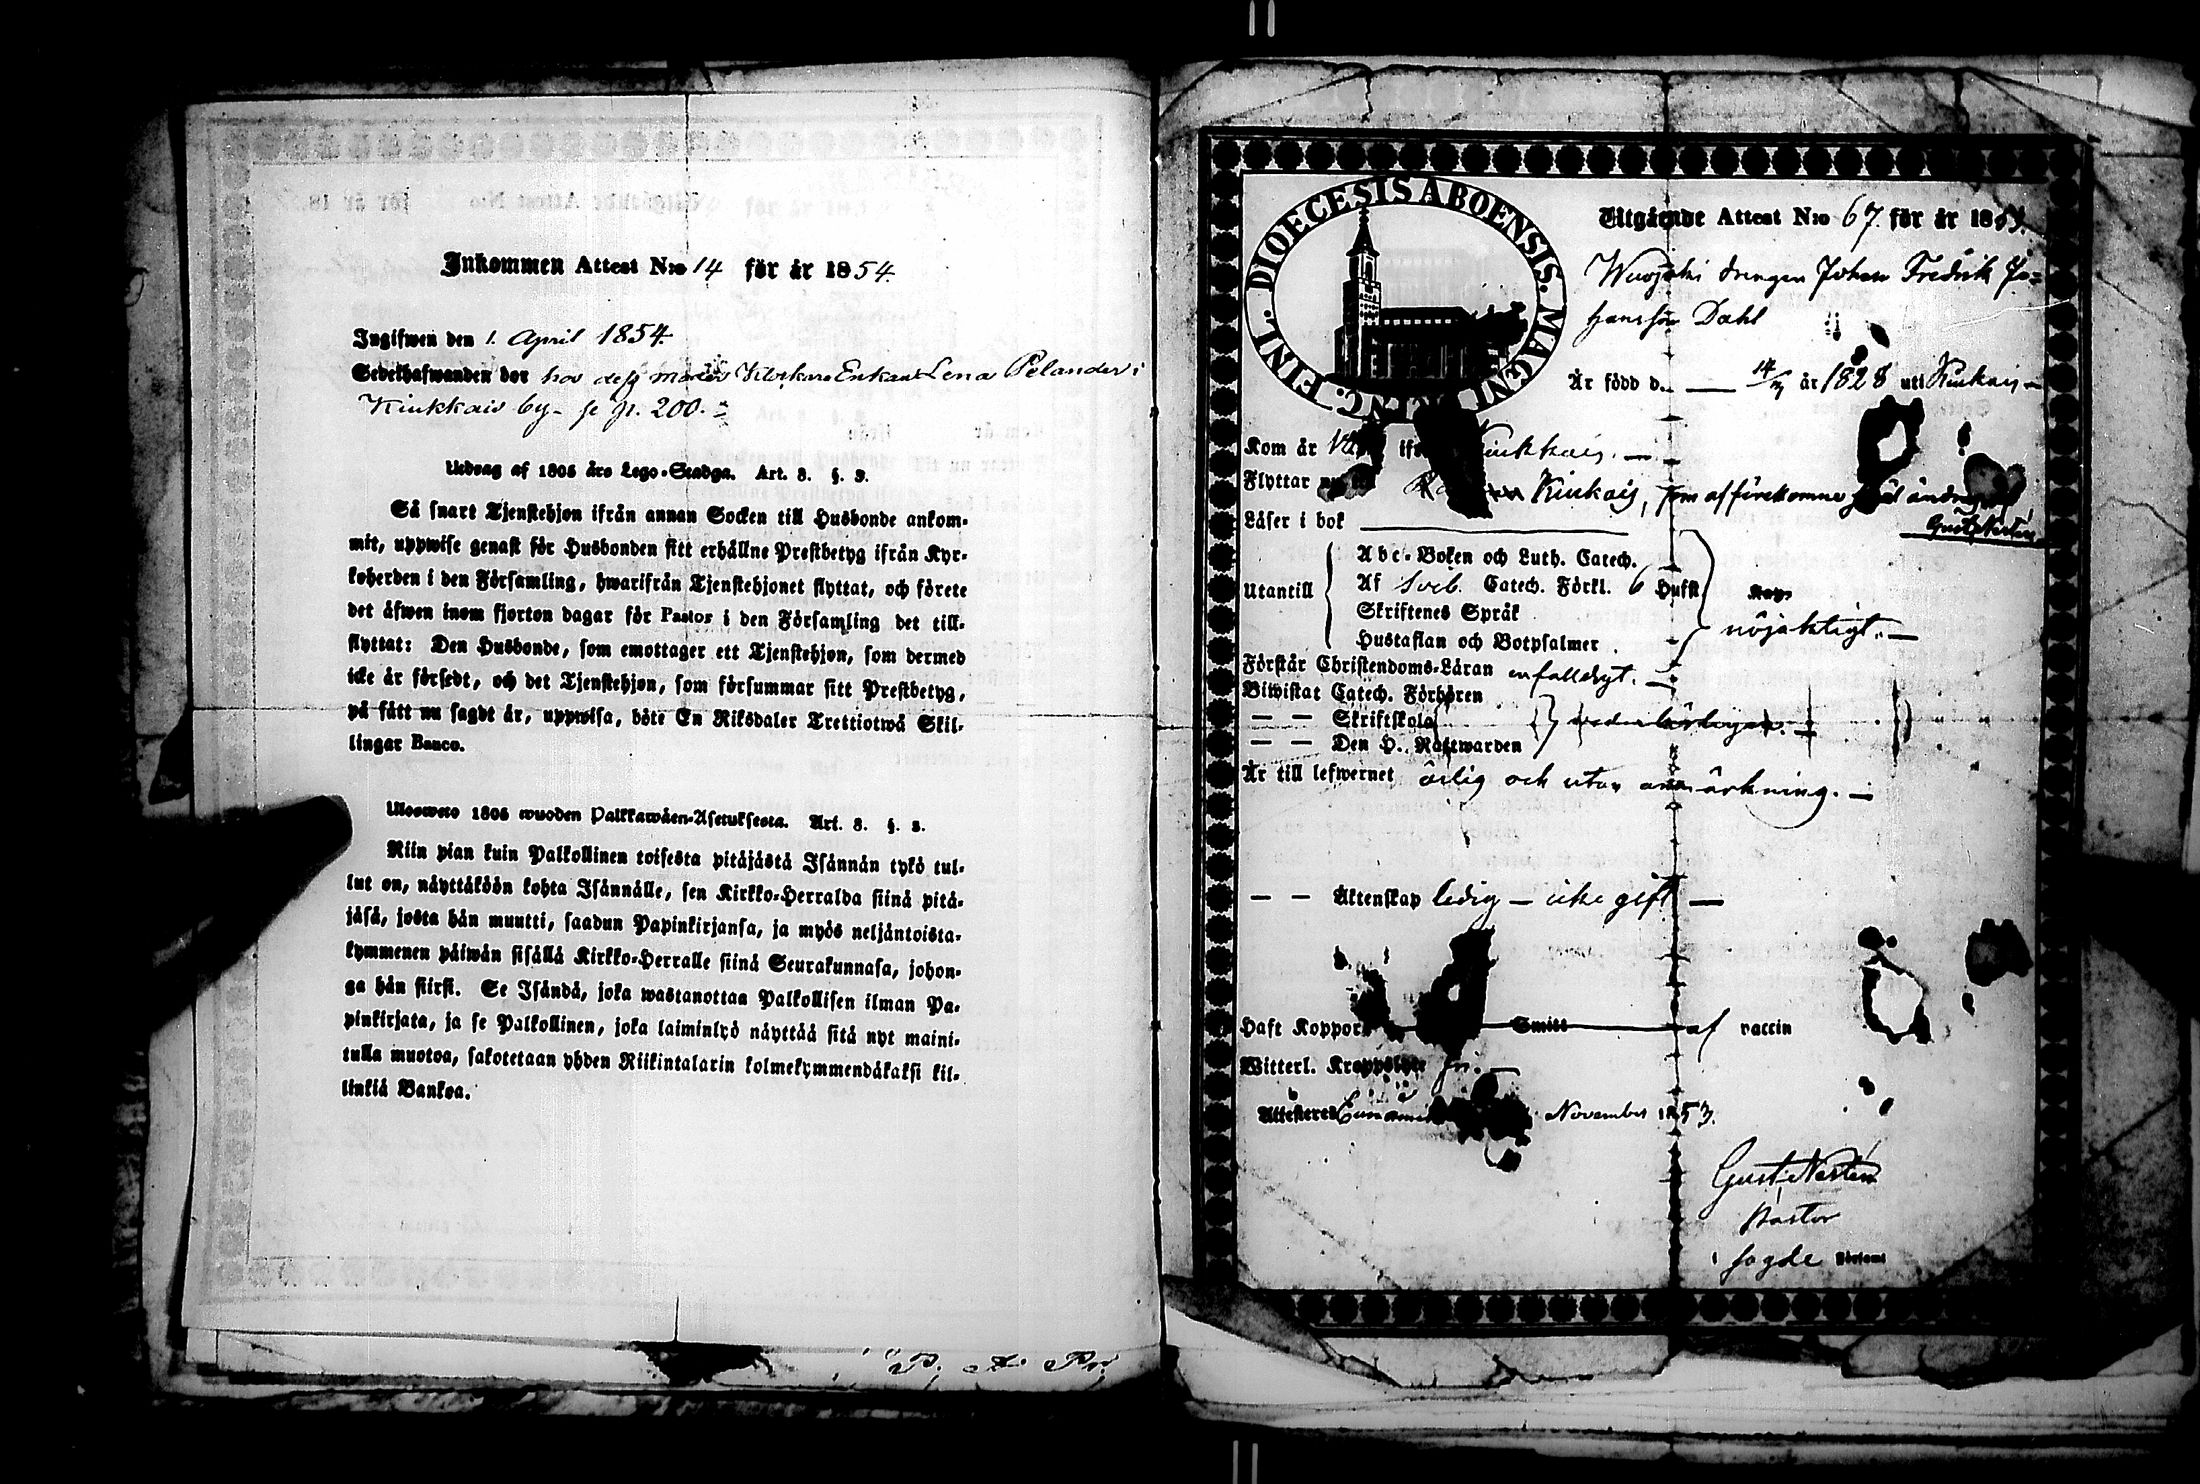 Inkommen Attest N:o 14 för år 1854.
Ingifwen den 1. April 1854.
Sedelhafwanden bor hos dess moder Klockare Enkan Lena Pelander i
Kinkkais by - se p. 200.
Utdrag af 1805 års Lego-Stadga. Art. 8. §. 3.
Så snart Tjenstehjon ifrån annan Socken till Husbonde ankom-
mit, uppwise genast för Husbonden sitt erhållne Prestbetyg ifrån Kyr-
koherden i den Församling, hwarifrån Tjenstehjonet flyttat, och förete
det äfwen inom fjorton dagar för Pastor i den Församling det till-
flyttat: Den Husbonde, som emottager ett Tjenstehjon, som dermed
icke är försedt, och det Tjenstehjon, som försummar sitt Prestbetyg,
på sått nu sagdt är, uppwisa, böte En Riksdaler Trettiotwå Skil-
lingar Banco.
Ulosweto 1805 wuoden Palkkawäen-Asetuksesta. Art. 8. §. 3.
Niin pian kuin Palkollinen toisesta pitäjästä Isännän tykö tul-
lut on, näyttäköön kohta Isännälle, sen Kirkko-Herralda siinä pitä-
jäsä, josta hän muutti, saadun Papinkirjansa, ja myös neljäntoista-
kymmenen päiwän sisällä Kirkko-Herralle siinä Seurakunnasa, johon-
ga hän siirsi. Se Isändä, joka wastanottaa Palkollisen ilman Pa-
pinkirjata, ja se Palkollinen, joka laiminlyö näyttää sitä nyt maini-
tulla muotoa, sakotetaan yhden Riikintalarin kolmekymmendäkaksi kil-
linkiä Bankoa.
P. A. Pr.
DIOECESIS ABOENSIS. MAGNI DUC. FINL.
Utgående Attest N:o 67. för år 1853.
drengen Johan Fredrik Jo-
hansson Dahl
Är född d. — 14/ år 1828 uti Kinkais —
Kom år ifrån Kinkkais. —
Flyttar nu till Kinkais, som af förekomne skäl ändras
Gust. Nestén
Läser i bok
Abc-Boken och Luth. Catech.
Utantill Af Sveb. Catech. Förkl. 6 Hufst.
Skriftenes Språk
nöjaktigt. —
Hustaflan och Botpsalmer
Förstår Christendoms-Läran enfaldigt. —
Biwistat Catech. Förhören
— — Skriftskola
— — Den H. Nattwarden
Är till lefwernet ärlig och utan anmärkning. —
— — Äktenskap ledig — icke gift —
Haft Koppor Smitt af vaccin
Witterl. Kroppslyte fri. —
Attesteres November 1853.
Gust. Nestén
Pastor
i sagde Församl.